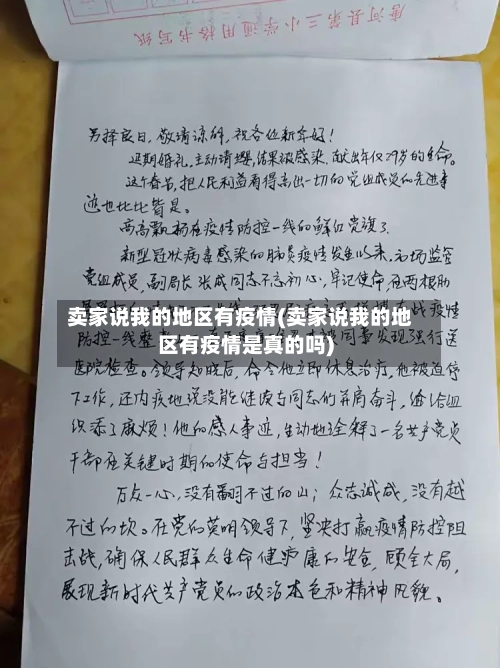 唐河县第三小学通用格书写纸
另择良日，敬请谅解，祝各位新年好！
延期婚礼，主动请缨，结果被感染，献出年仅29岁的生命。
这个春节，把人民利益看得高出一切的党组成员的先进事
迹也比比皆是。
高高飘扬在疫情防控一线的鲜红党旗？
新型冠状病毒感染的肺炎疫情发生以来，市场监管
党组成员、副局长张成同志不忘初心，牢记使命，在两根肋
战疫情
卖家说我的地区有疫情(卖家说我的地
防控一线 被同事发现强行送
区有疫情是真的吗)
医院检查。领导知晓后，命令他立即休息治疗，他被迫停
下工作，还内疚地说没能继续与同志们并肩奋斗，给组
织添了麻烦！他的感人事迹，生动地诠释了一名共产党员
干部在关键时期的使命与担当！
万众一心，没有翻不过的山；众志诚成，没有越
不过的坎。在党的英明领导下，坚决打赢疫情防控阻
击战，确保人民群众生命健康的安全，顾全大局，
展现新时代共产党员的政治本色和精神风貌。